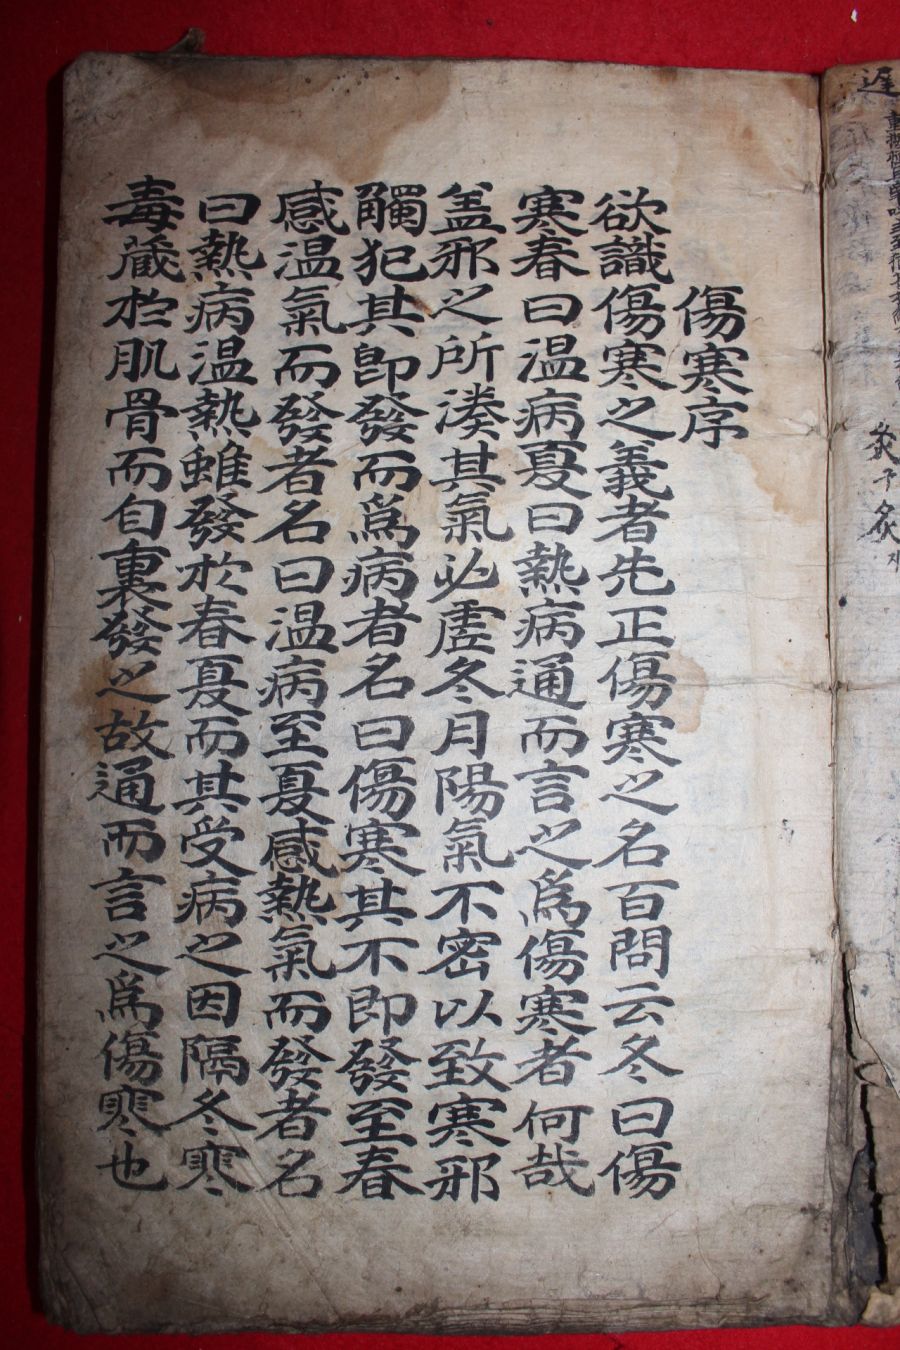 遲
炙
傷寒序
欲識傷寒之義者先正傷寒之名百問云冬曰傷
寒春曰温病夏曰熱病通而言之爲傷寒者何哉
盖邪之所湊其氣必虛冬月陽氣不密以致寒邪
觸犯其卽發而爲病者名曰傷寒其不即發至春
感温氣而發者名曰温病至夏感熱氣而發者名
曰熱病温熱雖發於春夏而其受病之因隔冬寒
毒藏於肌骨而自裏發之故通而言之爲傷寒也